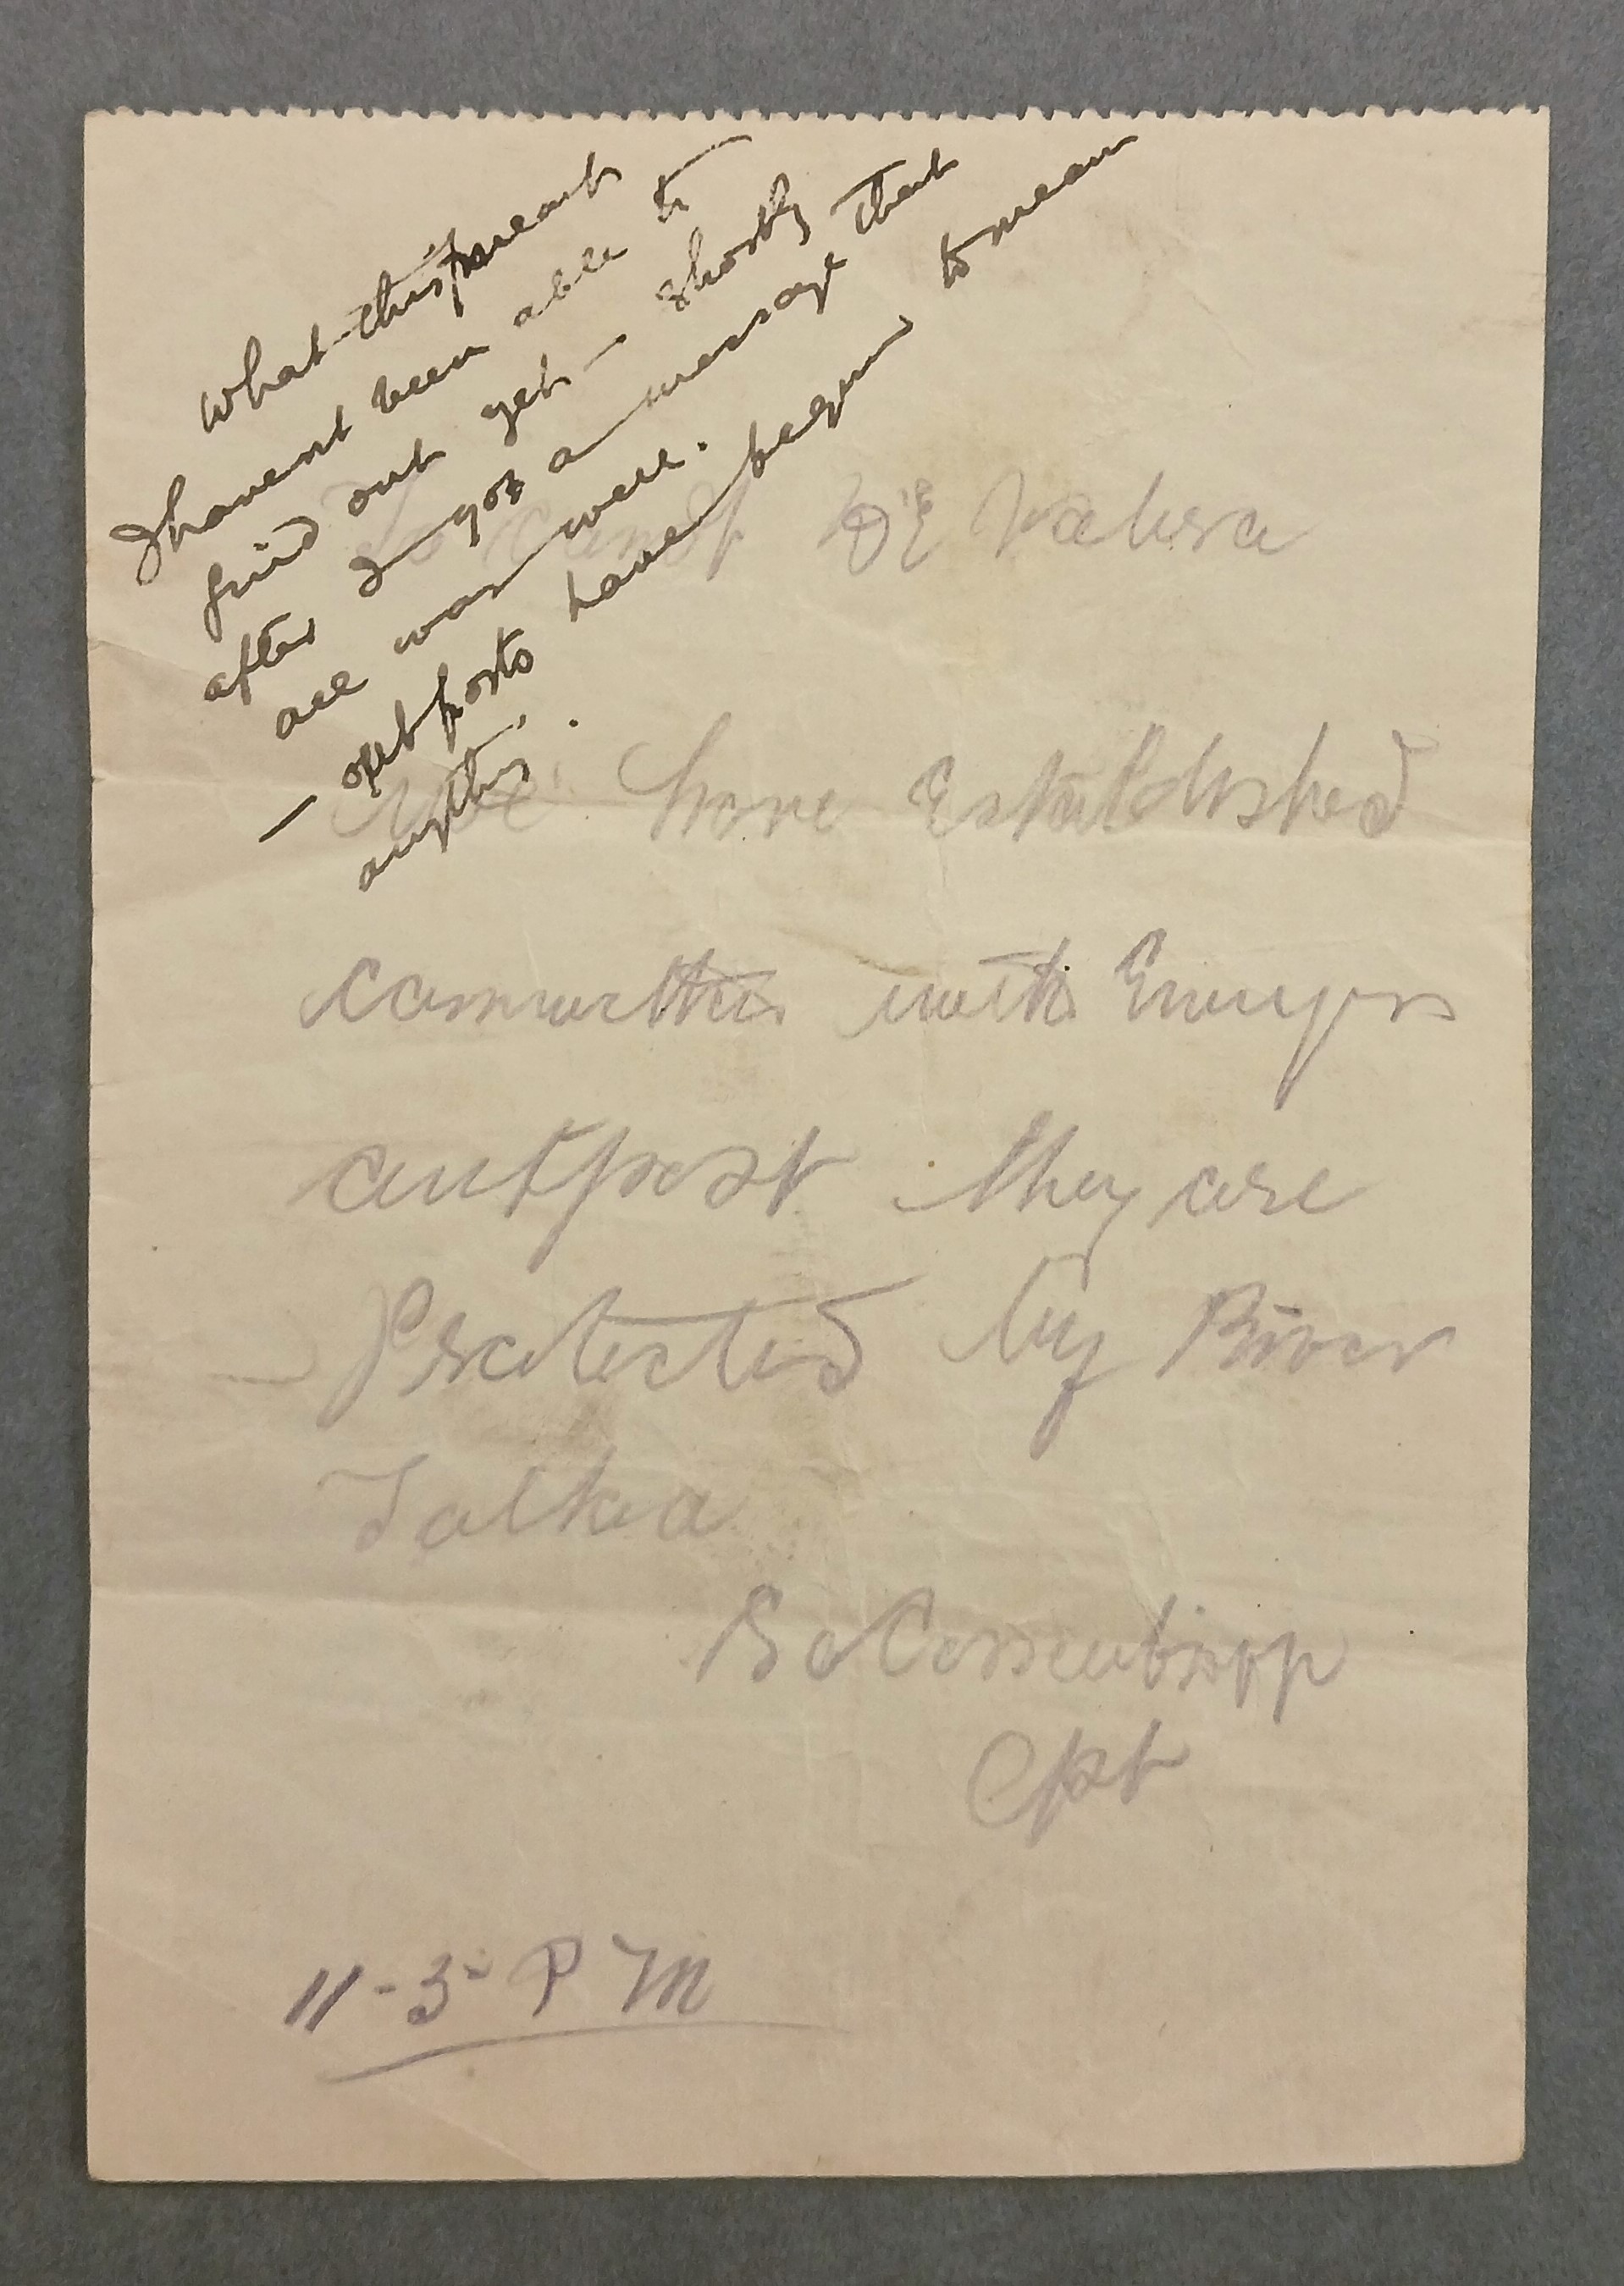 What this meant
I havent been able to
find out yet — shortly
after I got a message that
all was well.
— outposts have begun to mean
anything.
To Comdt DE Valera
We have Established
with Enemys
outpost they are
Protected by River
Tolka
Cpt
11-3- PM